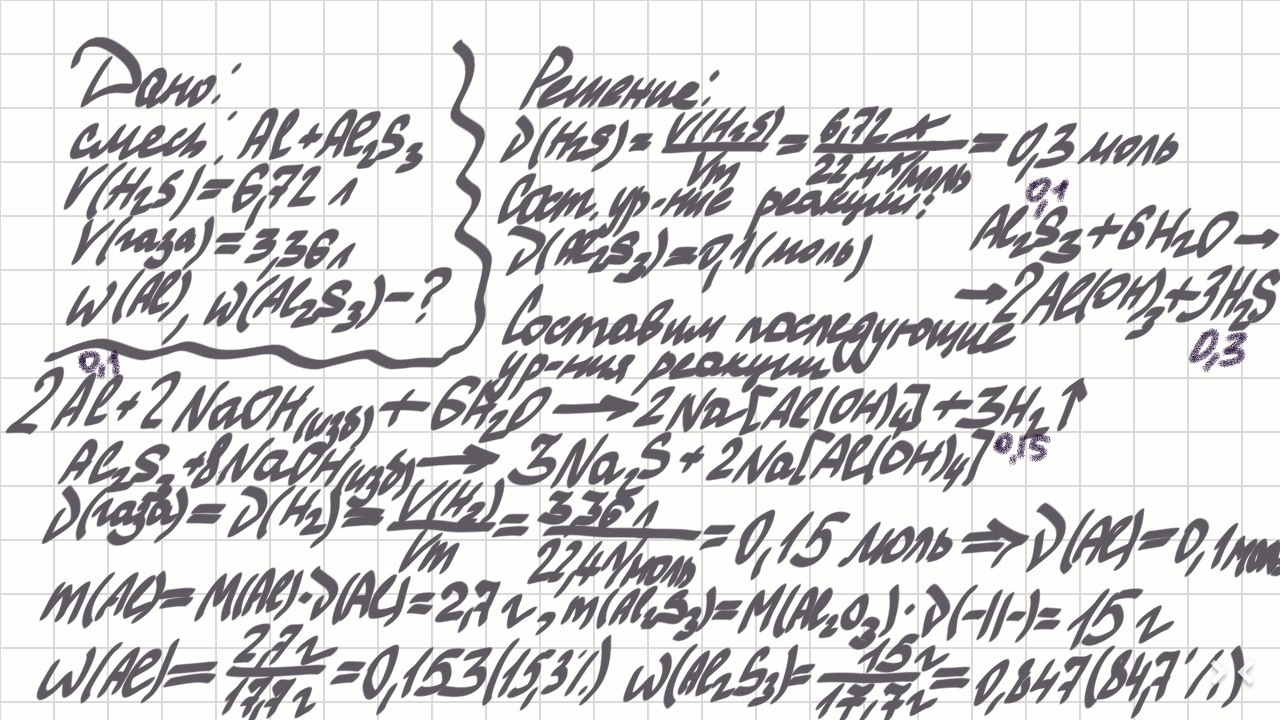 Дано:
смесь: Al+Al₂S₃
V(H₂S)=6,72 л
V(газа)=3,36л
w(Al), w(Al₂S₃)-?
Решение:
ν(H₂S)= V(H₂S)/Vm = 6,72 л/22,4 л/моль = 0,3 моль
Сост. ур-ние реакции:
0,1
Al₂S₃+6H₂O→
ν(Al₂S₃)=0,1(моль)
→2Al(OH)₃+3H₂S
0,3
Составим последующие
ур-ния реакции
0,1
2Al+2NaOH(изб)+6H₂O→2Na[Al(OH)₄]+3H₂↑
0,15
Al₂S₃+8NaOH(изб)→3Na₂S+2Na[Al(OH)₄]
ν(газа)=ν(H₂)= V(H₂)/Vm = 3,36 л/22,4 л/моль = 0,15 моль ⇒ ν(Al)=0,1моль
m(Al)=M(Al)·ν(Al)=2,7 г, m(Al₂S₃)=M(Al₂O₃)·ν(-11-)=15 г
w(Al)= 2,7 г/17,7 г =0,153(15,3%) w(Al₂S₃)= 15 г/17,7 г =0,847(84,7%)